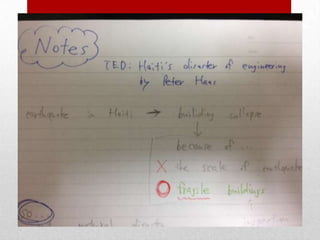 Notes
TED: Haiti's disaster of engineering
by Peter Haas
earthquake in Haiti → building collapse
↓
because of ...
X the scale of earthquake
O fragile buildings
so...
natural